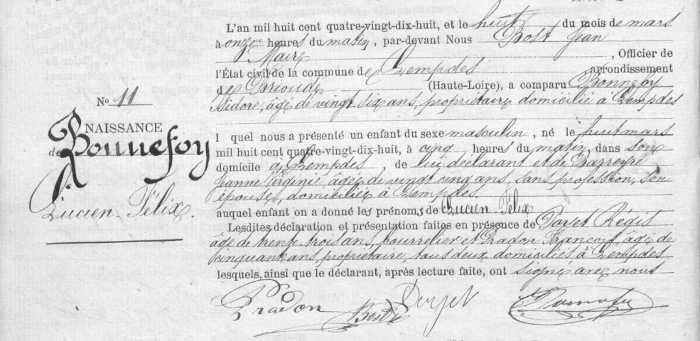 L'an mil huit cent quatre-vingt-dix-huit, et le huit du mois de mars
à onze heures du matin, par-devant Nous Bost Jean
Maire, Officier de
l'État civil de la commune de Lempdes arrondissement
de Brioude (Haute-Loire), a comparu Bonnefoy
Isidore, âgé de vingt six ans, propriétaire domicilié à Lempdes
No 11
NAISSANCE
de Bonnefoy
Lucien-Félix
lquel nous a présenté un enfant du sexe masculin, né le huit mars
mil huit cent quatre-vingt-dix-huit, à cinq heures du matin, dans son
domicile à Lempdes, de lui déclarant et de
Jeanne Virginie âgée de vingt cinq ans, sans profession, son
épouse, domiciliée à Lempdes
auquel enfant on a donné les prénoms de Lucien-Félix
Lesdites déclaration et présentation faites en présence de Doyet Régis
âgé de trente trois ans, bourrelier et Pradon François, âgé de
cinquante ans, propriétaire, tous deux domiciliés à Lempdes
lesquels, ainsi que le déclarant, après lecture faite, ont signé avec nous
Pradon Bost Doyet Bonnefoy